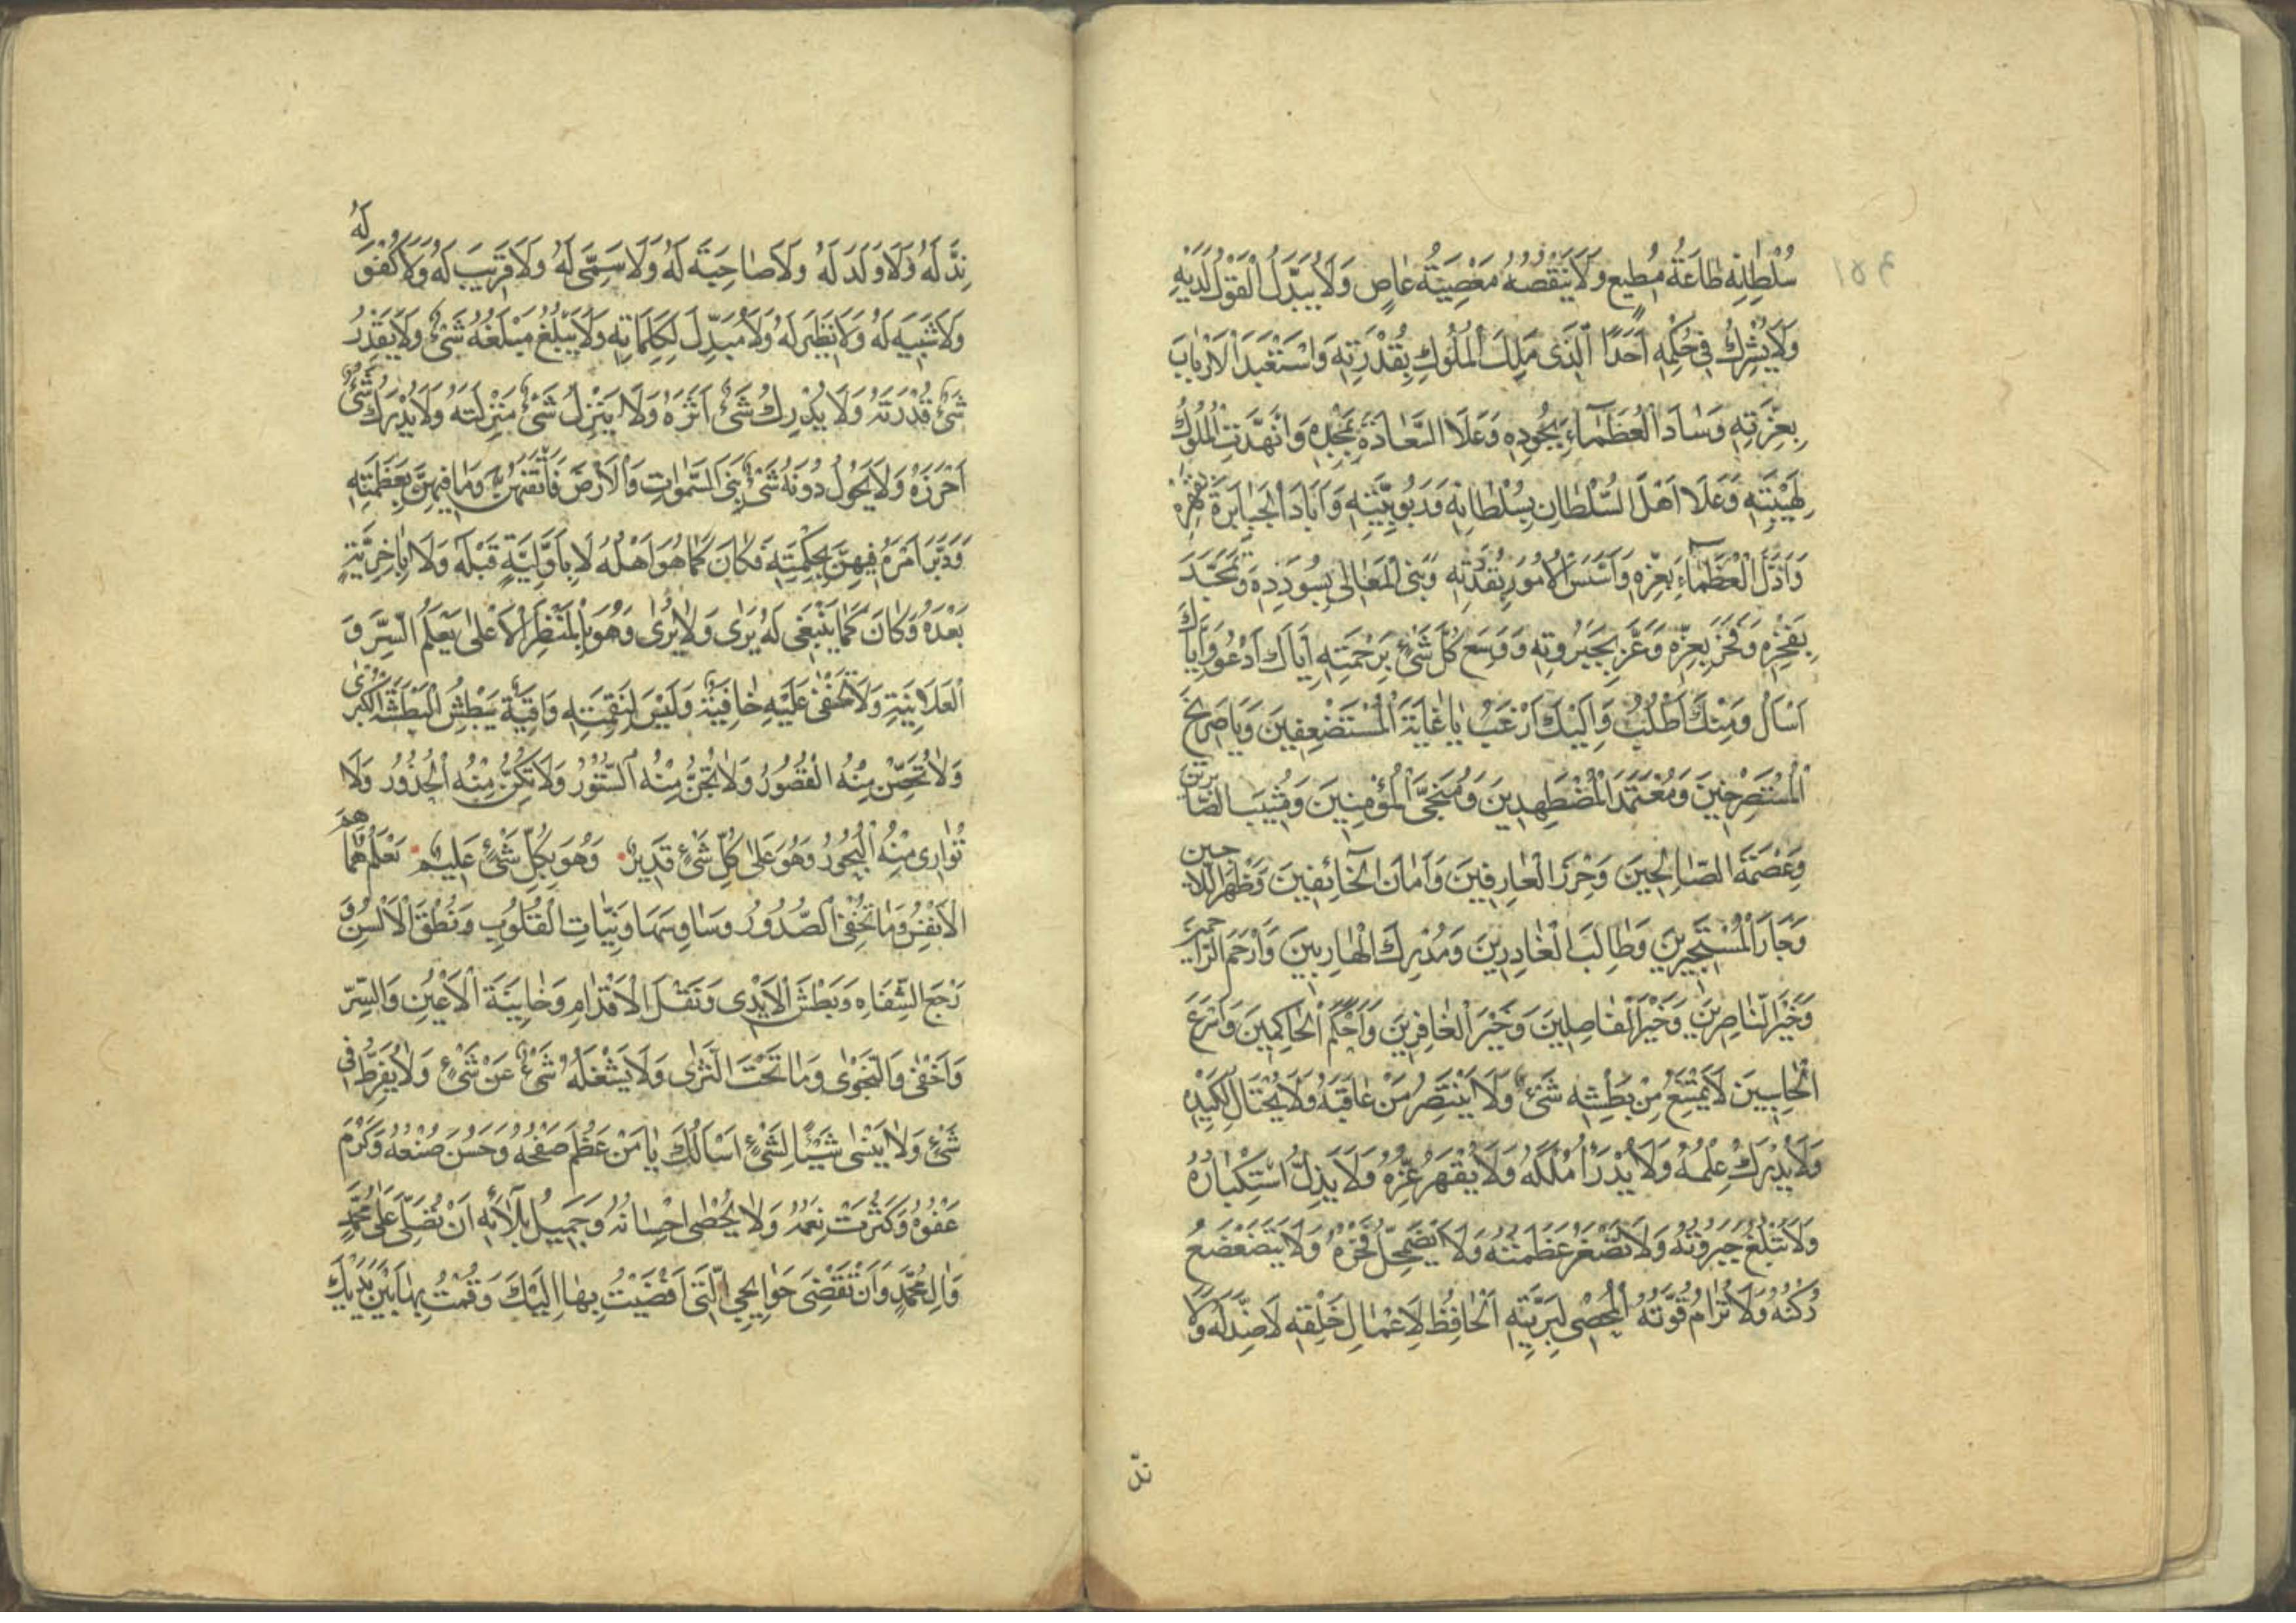 ١٥٤
سُلْطٰانِهِ طٰاعَةُ مُطيعٍ وَلَا يَنْقُصُهُ مَعْصِيَةُ عٰاصٍ وَلَا يُبَدَّلُ الْقَوْلُ لَدَيْهِ
وَلَا يُشْرِكُ في حُكْمِهِ اَحَدًا الَّذي مَلَكَ الْمُلُوكَ بِقُدْرَتِهِ وَاسْتَعْبَدَ الْاَرْبٰابَ
بِعِزَّتِهِ وَسٰادَ الْعُظَمٰاءَ بِجُودِهِ وَعَلَا السَّادَةَ بِمَجْدِهِ وَانْهَدَّتِ الْمُلُوكُ
لِهَيْبَتِهِ وَعَلَا اَهْلَ السُّلْطٰانِ بِسُلْطٰانِهِ وَرَبُوبِيَّتِهِ وَاَبَادَ الْجَبٰابِرَةَ بِقَهْرِهِ
وَاَذَلَّ الْعُظَمٰاءَ بِعِزِّهِ وَاَسَّسَ الْاُمُورَ بِقُدْرَتِهِ وَبَنَى الْمَعٰالِيَ بِسُودَدِهِ وَتَمَجَّدَ
بِفَخْرِهِ وَفَخَرَ بِعِزِّهِ وَعَزَّ بِجَبَرُوتِهِ وَوَسِعَ كُلَّ شَيْءٍ بِرَحْمَتِهِ اِيَّاكَ اَدْعُو وَاِيَّاكَ
اَسْاَلُ وَمِنْكَ اَطْلُبُ وَاِلَيْكَ اَرْغَبُ يٰا غٰايَةَ الْمُسْتَضْعَفِينَ وَيٰا صَرِيخَ
الْمُسْتَصْرِخِينَ وَمُعْتَمَدَ الْمُضْطَهَدِينَ وَمُنْجِيَ الْمُؤْمِنِينَ وَمُثِيبَ الصَّابِرِينَ
وَعِصْمَةَ الصّٰالِحِينَ وَحِرْزَ الْعٰارِفِينَ وَاَمٰانَ الْخٰائِفِينَ وَظَهْرَ اللّٰاجِينَ
وَجٰارَ الْمُسْتَجِيرِينَ وَطٰالِبَ الْغٰادِرِينَ وَمُدْرِكَ الْهٰارِبِينَ وَاَرْحَمَ الرّٰاحِمِينَ
وَخَيْرَ النّٰاصِرِينَ وَخَيْرَ الْفٰاصِلِينَ وَخَيْرَ الْغٰافِرِينَ وَاَحْكَمَ الْحٰاكِمِينَ وَاَسْرَعَ
الْحٰاسِبِينَ لَا يَمْتَنِعُ مِنْ بَطْشِهِ شَيْءٌ وَلَا يَنْتَصِرُ مَنْ عٰاقَبَهُ وَلَا يُحْتٰالُ لِكَيْدِهِ
وَلَا يُدْرَكُ عِلْمُهُ وَلَا يُدْرَأُ مُلْكُهُ وَلَا يُقْهَرُ عِزُّهُ وَلَا يُذَلُّ اسْتِكْبٰارُهُ
وَلَا يُبْلَغُ جَبَرُوتُهُ وَلَا تَصْغُرُ عَظَمَتُهُ وَلَا يَضْمَحِلُّ فَخْرُهُ وَلَا يَتَضَعْضَعُ
رُكْنُهُ وَلَا تُرٰامُ قُوَّتُهُ الْمُحْصِي لِبَرِيَّتِهِ الْحٰافِظُ لِاَعْمٰالِ خَلْقِهِ لَا ضِدَّ لَهُ وَلَا
ندّ
نِدَّ لَهُ وَلَا وَلَدَ لَهُ وَلَا صٰاحِبَةَ لَهُ وَلَا سَمِيَّ لَهُ وَلَا قَرِيبَ لَهُ وَلَا كُفْوَ لَهُ
وَلَا شَبِيهَ لَهُ وَلَا نَظِيرَ لَهُ وَلَا مُبَدِّلَ لِكَلِمٰاتِهِ وَلَا يَبْلُغُ مَبْلَغَهُ شَيْءٌ وَلَا يَقْدِرُ
شَيْءٌ قُدْرَتَهُ وَلَا يُدْرِكُ شَيْءٌ اَثَرَهُ وَلَا يَنْزِلُ شَيْءٌ مَنْزِلَتَهُ وَلَا يُدْرِكُ شَيْءٌ
اَحْرَزَهُ وَلَا يَحُولُ دُونَهُ شَيْءٌ بَنَى السَّمٰوٰاتِ وَالْاَرْضَ فَاَتْقَنَهُنَّ وَمٰا فِيهِنَّ بِعَظَمَتِهِ
وَدَبَّرَ اَمْرَهُ فِيهِنَّ بِحِكْمَتِهِ فَكٰانَ كَمٰا هُوَ اَهْلُهُ لَا بِاَوَّلِيَّةٍ قَبْلَهُ وَلَا بِاٰخِرِيَّةٍ
بَعْدَهُ وَكٰانَ كَمٰا يَنْبَغِي لَهُ يَرٰى وَلَا يُرٰى وَهُوَ بِالْمَنْظَرِ الْاَعْلٰى يَعْلَمُ السِّرَّ وَ
الْعَلَانِيَةَ وَلَا تَخْفٰى عَلَيْهِ خٰافِيَةٌ وَلَيْسَ لِنَقِمَتِهِ وٰاقِيَةٌ يَبْطِشُ الْبَطْشَةَ الْكُبْرٰى
وَلَا تُحَصِّنُ مِنْهُ الْقُصُورُ وَلَا تُجِنُّ مِنْهُ السُّتُورُ وَلَا تُكِنُّ مِنْهُ الْخُدُورُ وَلَا
تُوٰارِي مِنْهُ الْبُحُورُ وَهُوَ عَلٰى كُلِّ شَيْءٍ قَدِيرٌ وَهُوَ بِكُلِّ شَيْءٍ عَلِيمٌ يَعْلَمُ هَمَاهِمَ
الْاَنْفُسِ وَمٰا تُخْفِي الصُّدُورُ وَسٰاوِسَهَا وَنِيّٰاتِ الْقُلُوبِ وَنُطْقَ الْاَلْسُنِ وَ
رَجْعَ الشِّفٰاهِ وَبَطْشَ الْاَيْدِي وَنَقْلَ الْاَقْدٰامِ وَخٰايِنَةَ الْاَعْيُنِ وَالسِّرَّ
وَاَخْفٰى وَالنَّجْوٰى وَمٰا تَحْتَ الثَّرٰى وَلَا يَشْغَلُهُ شَيْءٌ عَنْ شَيْءٍ وَلَا يُفَرِّطُ فِي
شَيْءٍ وَلَا يَنْسٰى شَيْئًا لِشَيْءٍ اَسْاَلُكَ يٰا مَنْ عَظُمَ صَفْحُهُ وَحَسُنَ صُنْعُهُ وَكَرُمَ
عَفْوُهُ وَكَثُرَتْ نِعَمُهُ وَلَا يُحْصٰى اِحْسٰانُهُ وَجَمِيلُ بَلَائِهِ اَنْ تُصَلِّيَ عَلٰى مُحَمَّدٍ
وَاٰلِ مُحَمَّدٍ وَاَنْ تَقْضِيَ حَوٰايِجِيَ الَّتِي اَفْضَيْتُ بِهٰا اِلَيْكَ وَقُمْتُ بِهٰا بَيْنَ يَدَيْكَ